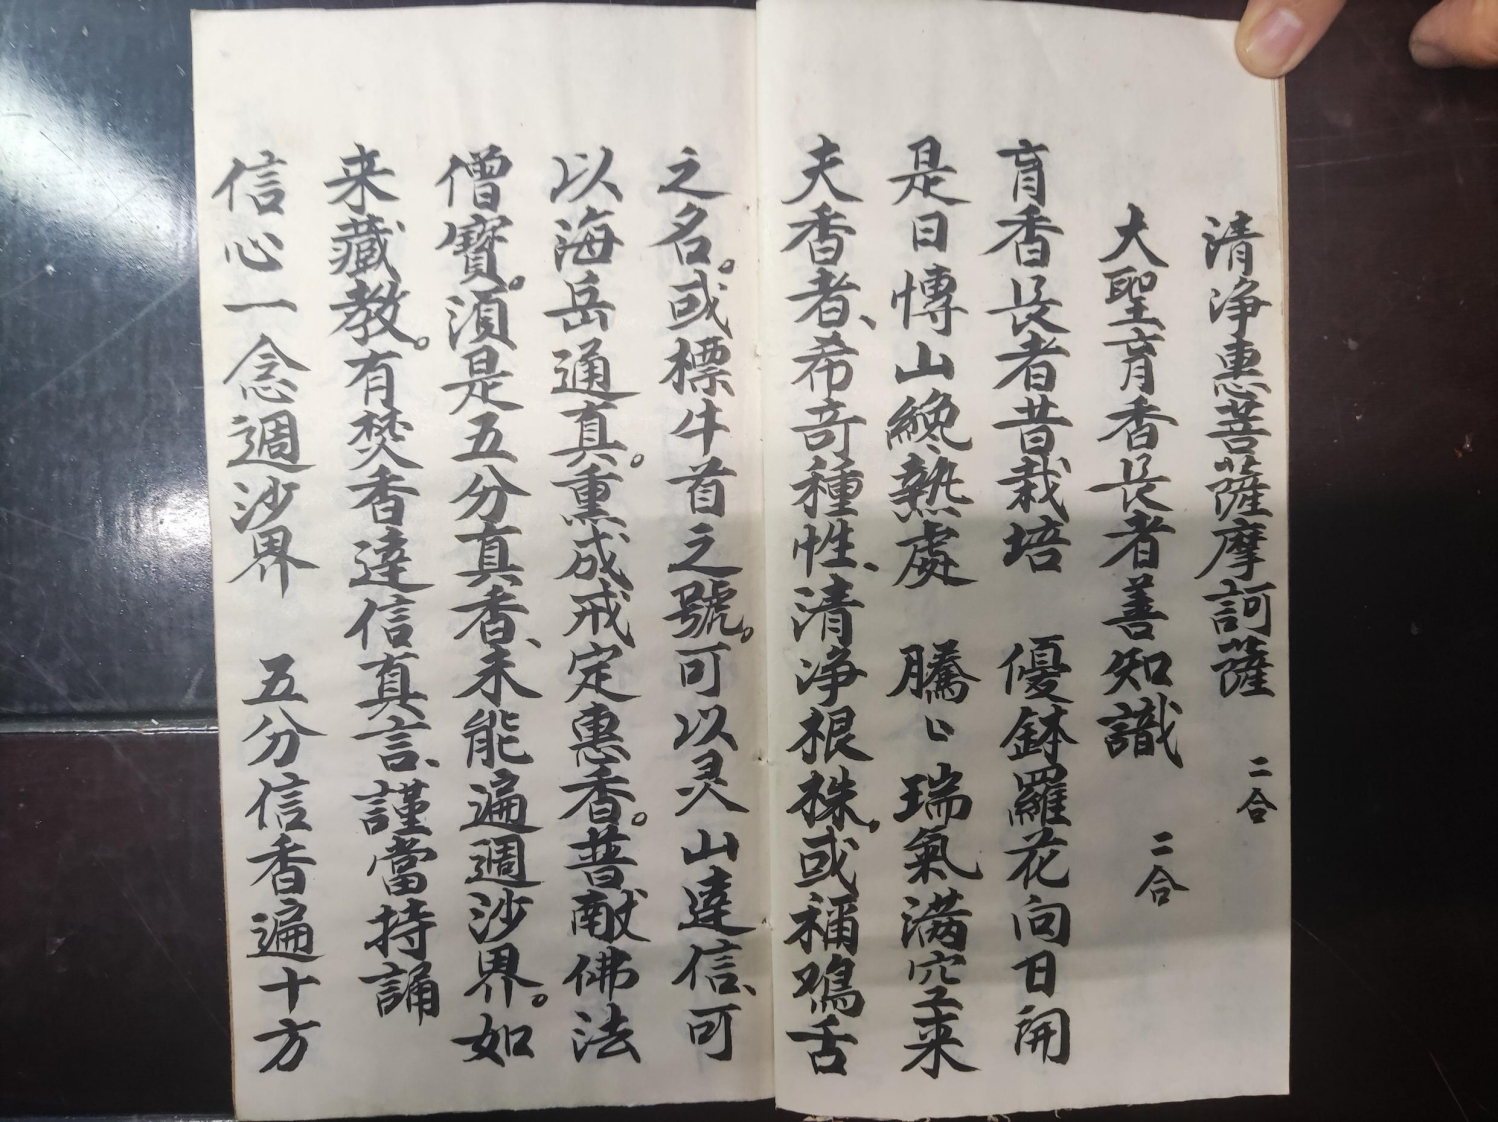 清净惠菩薩摩訶薩 二合
大聖育香長者善知識 二合
育香長者昔栽培 優鉢羅花向日開
是日愽山纔熱處 騰〻瑞氣满空来
夫香者、希奇種性、清净根株、或稱鳮舌
之名。或標牛首之號。可以灵山達信、可
以海岳通真。熏成戒定惠香。普献佛法
僧寳。湏是五分真香、未能遍週沙界。如
来藏教。有焚香達信真言、謹當持誦
信心一念週沙界 五分信香遍十方